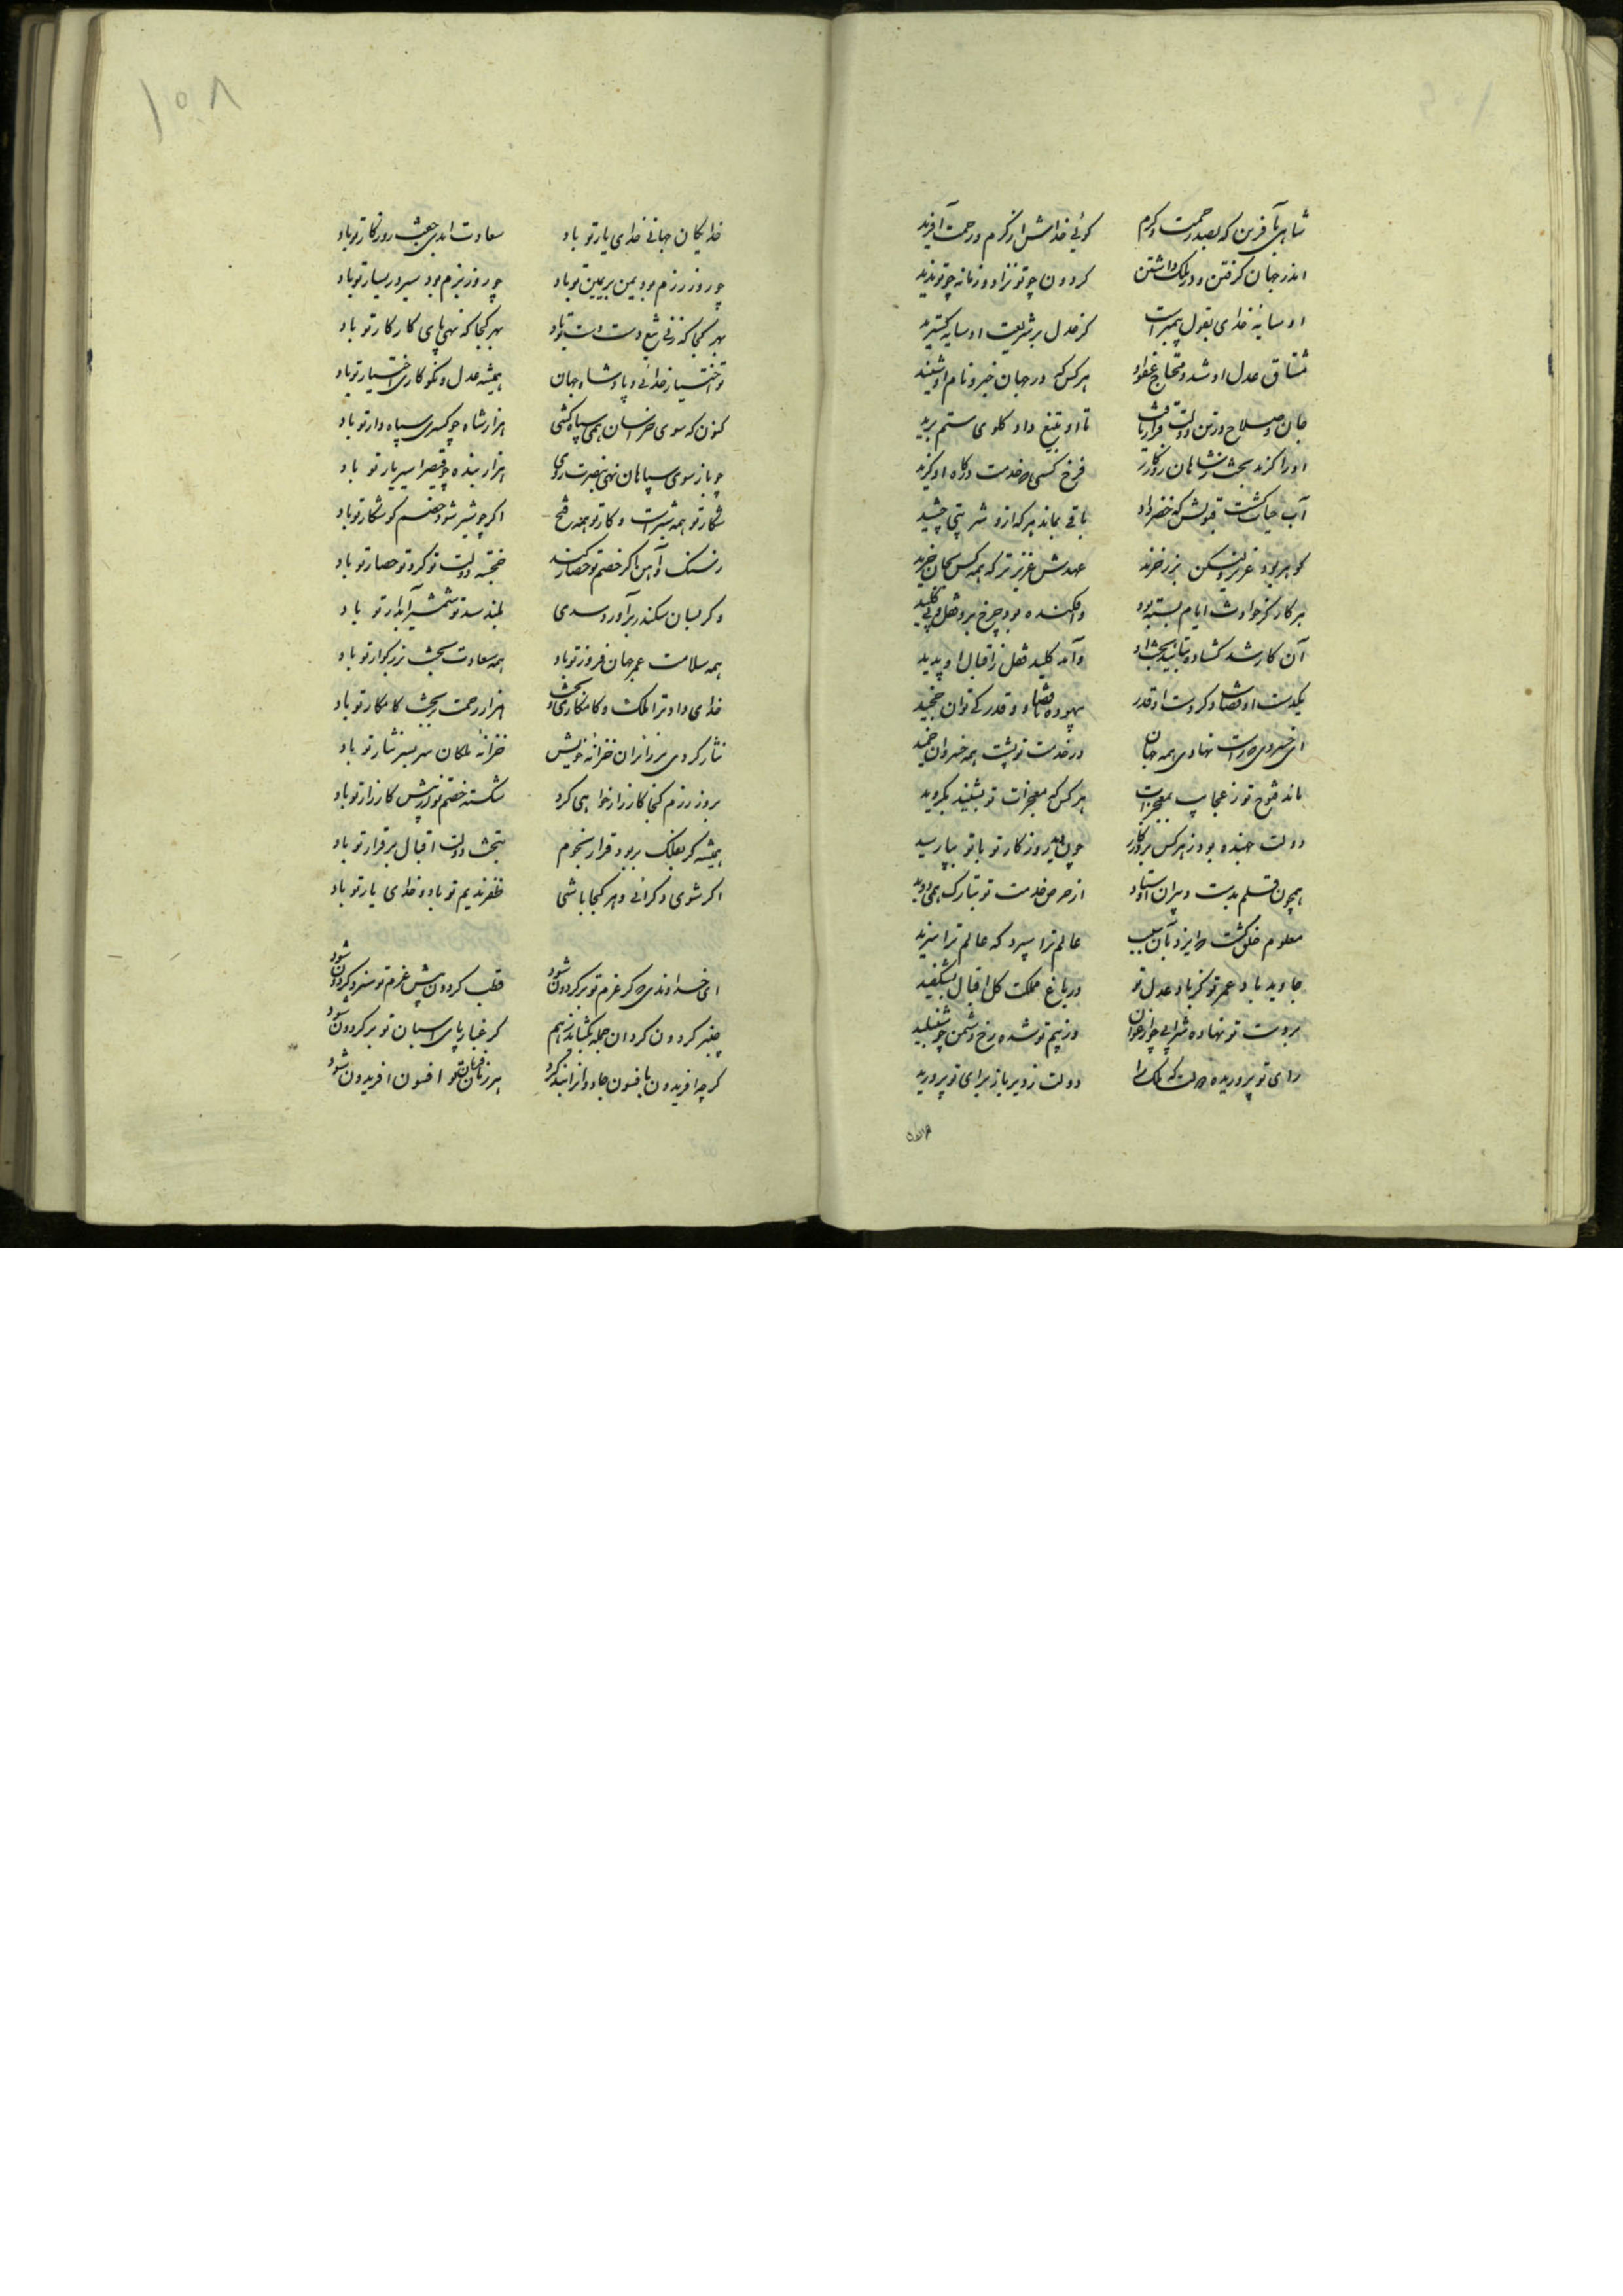 شاهی بآفرین که بصد رحمت و کرم
کوئی خدایش از کرم و رحمت آفرید
اندر جهان کرفتن و در ملک داشتن
کردون چو تو نزاد و زمانه چو تو ندید
او سایه خدای بقول پیمبرست
کز عدل بر شریعت او سایه کسترید
مشتاق عدل او شد و محتاج عفو او
هر کس که در جهان خبر و نام او شنید
جان و صلاح در تن دولت قرار یافت
تا او بتیغ داد کلوی ستم برید
او را کزید بخت ز شاهان روزکار
فرخ کسی که خدمت درکاه او کزید
آب حیات کشت قبولش که خضر وار
باقی بماند هر که ازو شربتی چشید
کوهر بود عزیز ولیکن بزر خرند
عهدش عزیزتر که همه کس بجان خرید
هر کار کز حوادث ایام بسته بود
وافکنده بود چرخ برو قفل بی کلید
آن کار شد کشاده بتایید بخت او
وآمد کلید قفل ز اقبال او پدید
یکدست او قضاست و کر دست او قدر
بیهوده با قضا و قدر کی توان چخید
ای خسروی که راست نهادی همه جهان
در خدمت تو پشت همه خسروان خمید
ماند فتوح تو ز عجایب بمعجزات
هر کس که معجزات تو بشنید بکروید
دولت جهنده بود ز هر کس بروزکار
چون بد بروزکار تو با تو بیارمید
همچون قلم بدست دبیران اوستاد
از حرص خدمت تو بتارک همی دوید
معلوم خلق کشت که ایزد بآن سبب
عالم ترا سپرد که عالم ترا سزید
جاوید باد عمر تو کز باد عدل تو
در باغ مملکت کل اقبال بشکفید
بر دست تو نهاده شرابی چو ارغوان
وز بیم تو شده رخ دشمن چو شنبلید
رای تو پروریده دولت که ملک را
دولت ز دیر باز برای تو پرورید
۱۰۸
خدایکان جهانی خدای یار تو باد
سعادت ابدی جفت روزکار تو باد
چو روز رزم بود یمن بر یمین تو باد
چو روز بزم بود یسر در یسار تو باد
بهر کجا که زنی تیغ دست دست تو باد
بهر کجا که نهی پای کار کار تو باد
تو اختیار خدائی و پادشاه جهان
همیشه عدل و نکوکاری اختیار تو باد
کنون که سوی خراسان همی سپاه کشی
هزار شاه چو کسری سپاه دار تو باد
چو باز سوی سپاهان نهی بنصرت روی
هزار بنده چو قیصر اسیر یار تو باد
شکار تو همه شیرست و کار تو همه فتح
اکر چو شیر شود خصم کو شکار تو باد
ز سنک و آهن اکر خصم تو حصار کند
خجسته دولت تو کرد تو حصار تو باد
و کر بسان سکندر برآورد سدی
بلند سد تو شمشیر آبدار تو باد
همه سلامت عمر جهان فروز تو باد
همه سعادت بخت بزرکوار تو باد
خدای داد ترا ملک و کامکاری و بخت
هزار رحمت بر بخت کامکار تو باد
نثار کردی بر زائران خزانه خویش
خزانه ملکان سر بسر نثار تو باد
بروز رزم کجا کارزار خواهی کرد
شکسته خصم تو در پیش کارزار تو باد
همیشه کر بفلک بر بود قرار نجوم
بتخت دولت اقبال بر قرار تو باد
اکر شوی و کر آئی و هر کجا باشی
ظفر ندیم تو باد و خدای یار تو باد
ای خداوندی که کر عزم تو بر کردون شود
قطب کردون پیش عزم تو سزد کردون شود
چنبر کردون کردان جمله بکشاید ز هم
کر غبار پای اسبان تو بر کردون شود
کر چه افریدون بافسون جادوانرا بند کرد
هر زمان فرمان تو افسون افریدون شود